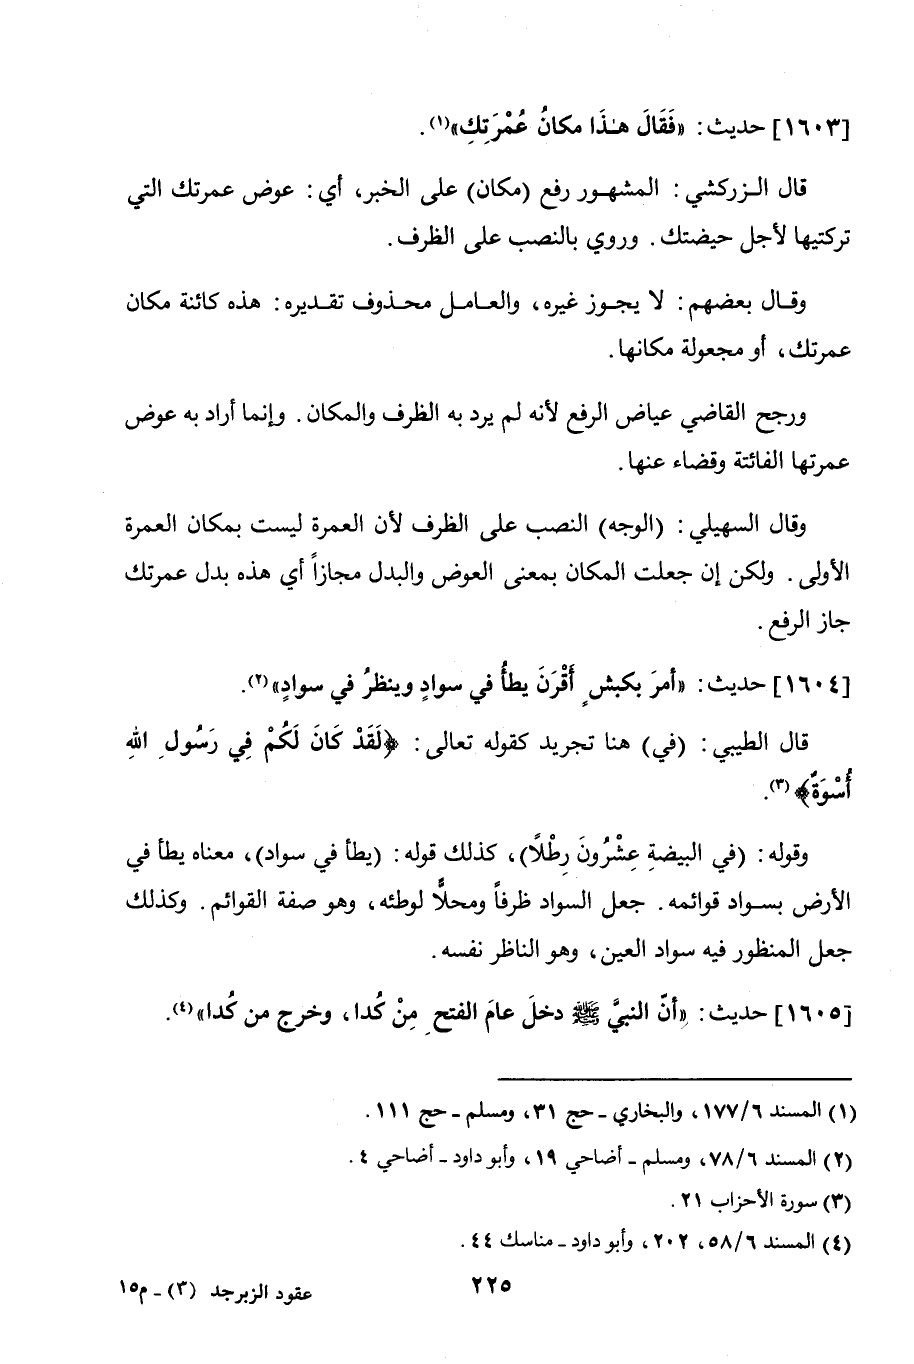 [١٦٠٣] حديث: «فَقَالَ هـٰذَا مكانُ عُمْرَتِكِ»(١).
قال الـزركشي: المشهـور رفع (مكان) على الخبر، أي: عوض عمرتك التي
تركتيها لأجل حيضتك. وروي بالنصب على الظرف.
وقـال بعضهم: لا يجـوز غيره، والعـامـل محـذوف تقـديره: هذه كائنة مكان
عمرتك، أو مجعولة مكانها.
ورجح القاضي عياض الرفع لأنه لم يرد به الظرف والمكان. وإنما أراد به عوض
عمرتها الفائتة وقضاء عنها.
وقال السهيلي: (الوجه) النصب على الظرف لأن العمرة ليست بمكان العمرة
الأولى. ولكن إن جعلت المكان بمعنى العوض والبدل مجازاً أي هذه بدل عمرتك
جاز الرفع.
[١٦٠٤] حديث: «أمرَ بكبشٍ أَقْرَنَ يطأُ في سوادٍ وينظرُ في سوادٍ»(٢).
قال الطيبي: (في) هنا تجريد كقوله تعالى: ﴿لَقَدْ كَانَ لَكُمْ فِي رَسُولِ اللهِ
أُسْوَةٌ﴾(٣).
وقوله: (في البيضةِ عِشْرُونَ رِطْلاً)، كذلك قوله: (يطأ في سواد)، معناه يطأ في
الأرض بسـواد قوائمه. جعل السواد ظرفاً ومحلًّا لوطئه، وهو صفة القوائم. وكذلك
جعل المنظور فيه سواد العين، وهو الناظر نفسه.
[١٦٠٥] حديث: «أنّ النبيَّ ﷺ دخلَ عامَ الفتحِ مِنْ كُدا، وخرج من كُدا»(٤).
(١) المسند ١٧٧/٦، والبخاري ـ حج ٣١، ومسلم ـ حج ١١١.
(٢) المسند ٧٨/٦، ومسلم ـ أضاحي ١٩، وأبو داود ـ أضاحي ٤.
(٣) سورة الأحزاب ٢١.
(٤) المسند ٥٨/٦، ٢٠٢، وأبو داود ـ مناسك ٤٤.
٢٢٥
عقود الزبرجد (٣) ـ م١٥